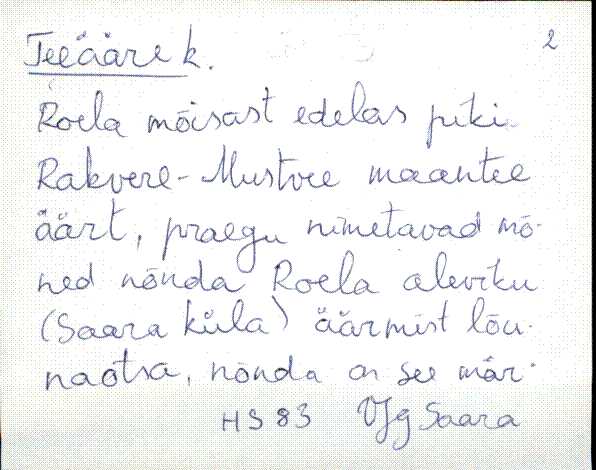 Teeääre k. 2
Roela mõisast edelas piki
Rakvere-Mustvee maantee
äärt, praegu nimetavad mõ-
ned nõnda Roela aleviku
(Saara küla) äärmist lõu-
naotsa, nõnda on see mär-
HS 83 VJg Saara